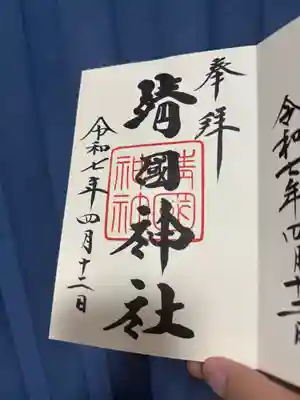 奉拝
靖國神社
靖國神社
令和七年四月十二日
令和七年四月十二日